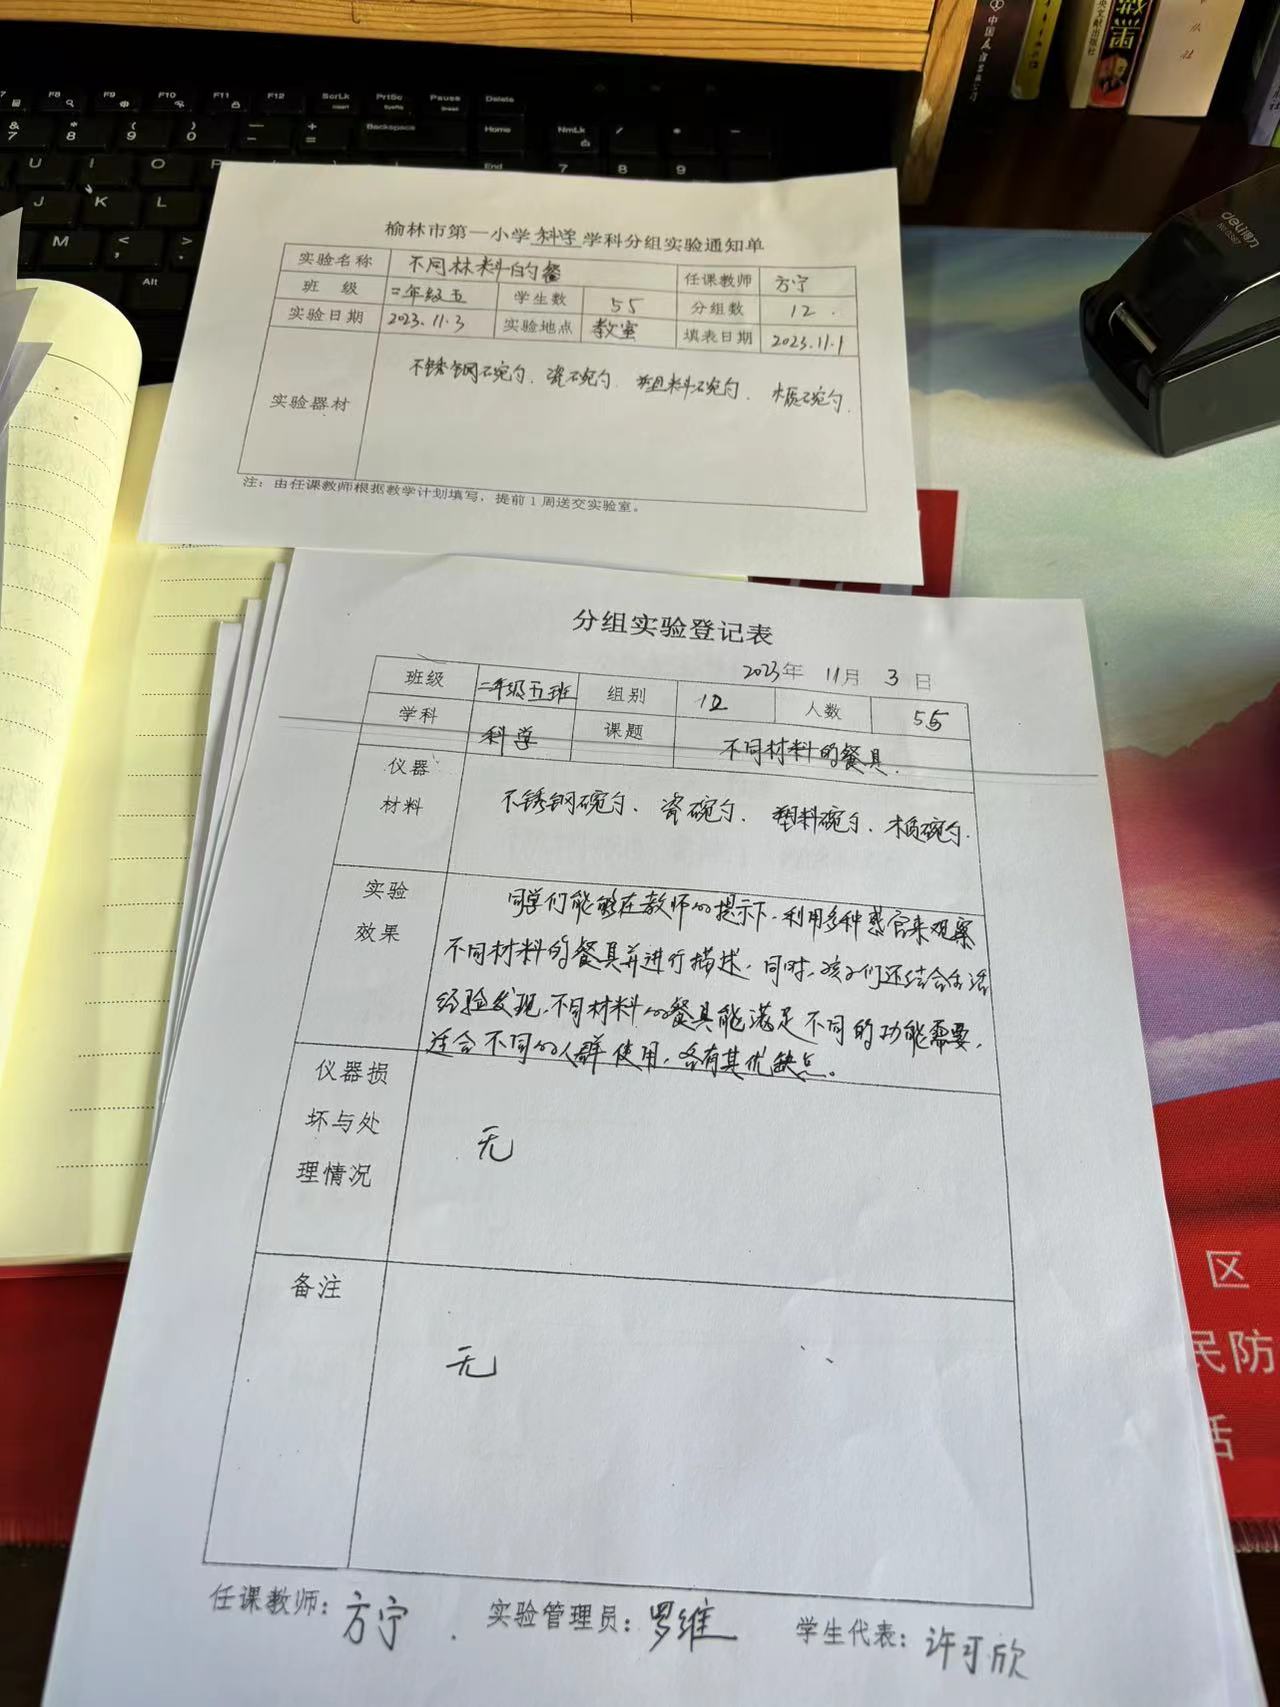 F8 F9 F10 F11 F12 ScrLk PrtSc Pause Delete
& 7 * 8 ( 9 ) 0 Backspace Home NmLk / * -
U I O P End 7 8 9
J K L
M < >
Alt
中国友谊出版公司
文献出版社
黑
出版社
deli得力
榆林市第一小学 科学 学科分组实验通知单
实验名称 不同材料的餐 任课教师 方宁
班 级 二年级五 学生数 55 分组数 12
实验日期 2023.11.3 实验地点 教室 填表日期 2023.11.1
实验器材 不锈钢碗勺、瓷碗勺、塑料碗勺、木质碗勺.
注：由任课教师根据教学计划填写，提前1周送交实验室。
分组实验登记表
2023年 11月 3日
班级 二年级五班 组别 12 人数 55
学科 科学 课题 不同材料的餐具.
仪器 材料 不锈钢碗勺、瓷碗勺、塑料碗勺、木质碗勺.
实验 效果 同学们能够在教师的提示下，利用多种感官来观察
不同材料的餐具并进行描述，同时，孩子们还结合生活
经验发现，不同材料的餐具能满足不同的功能需要，
适合不同的人群使用，各有其优缺点。
仪器损
坏与处 无
理情况
备注
无
任课教师：方宁 实验管理员：罗维 学生代表：许可欣
区
民防
活